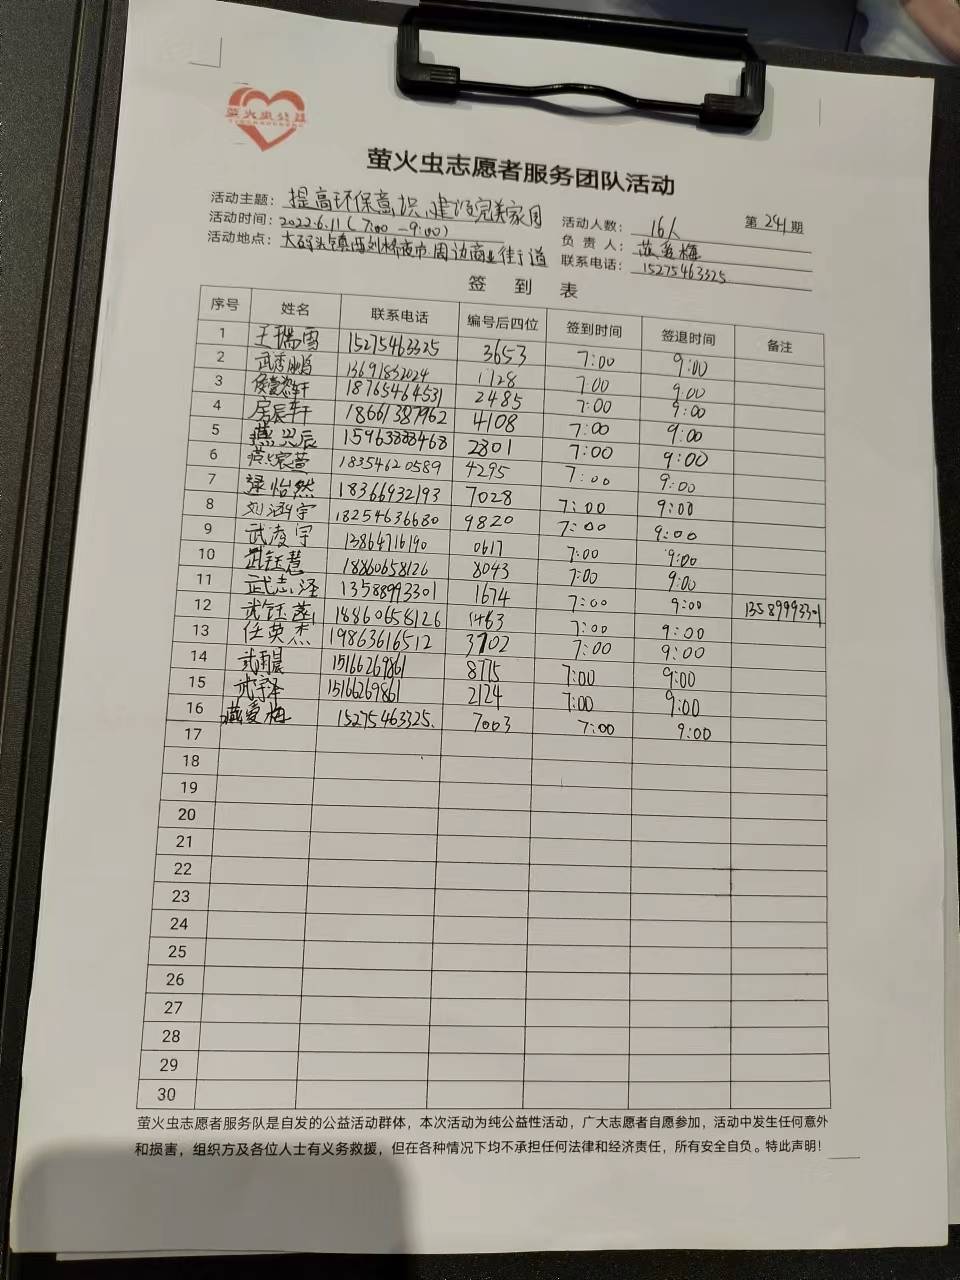 萤火虫公益
萤火虫志愿者服务团队活动
活动主题：提高环保意识、建设完美家园
活动人数：16人 第241期
活动时间：2022.6.11（7:00－9:00）
负责人：
活动地点：大码头镇西刘桥夜市.周边商业街道
联系电话：15275463325
签到表
序号 姓名 联系电话 编号后四位 签到时间 签退时间 备注
1 王瑞雪 15275463325 3653 7:00 9:00
2 武秀鹏 13691852024 1128 7:00 9:00
3 轩 18765464531 2485 7:00 9:00
4 房辰轩 18661387962 4108 7:00 9:00
5 燕辰 15963888468 2801 7:00 9:00
6 燕宸萱 18354620589 4295 7:00 9:00
7 逯怡然 18366932193 7028 7:00 9:00
8 刘涵宇 18254636680 9820 7:00 9:00
9 武凌宇 13864716190 0617 7:00 9:00
10 武钰慧 18860658126 8043 7:00 9:00
11 武志泽 13588993301 1674 7:00 9:00 13589993301
12 武钰菡 18860658126 1463 7:00 9:00
13 任英杰 19863616512 3702 7:00 9:00
14 武雨晨 15166269861 8775 7:00 9:00
15 武宇泽 15166269861 2124 7:00 9:00
16 爱梅 15275463325. 7003 7:00 9:00
17
18
19
20
21
22
23
24
25
26
27
28
29
30
萤火虫志愿者服务队是自发的公益活动群体，本次活动为纯公益性活动，广大志愿者自愿参加，活动中发生任何意外
和损害，组织方及各位人士有义务救援，但在各种情况下均不承担任何法律和经济责任，所有安全自负。特此声明！